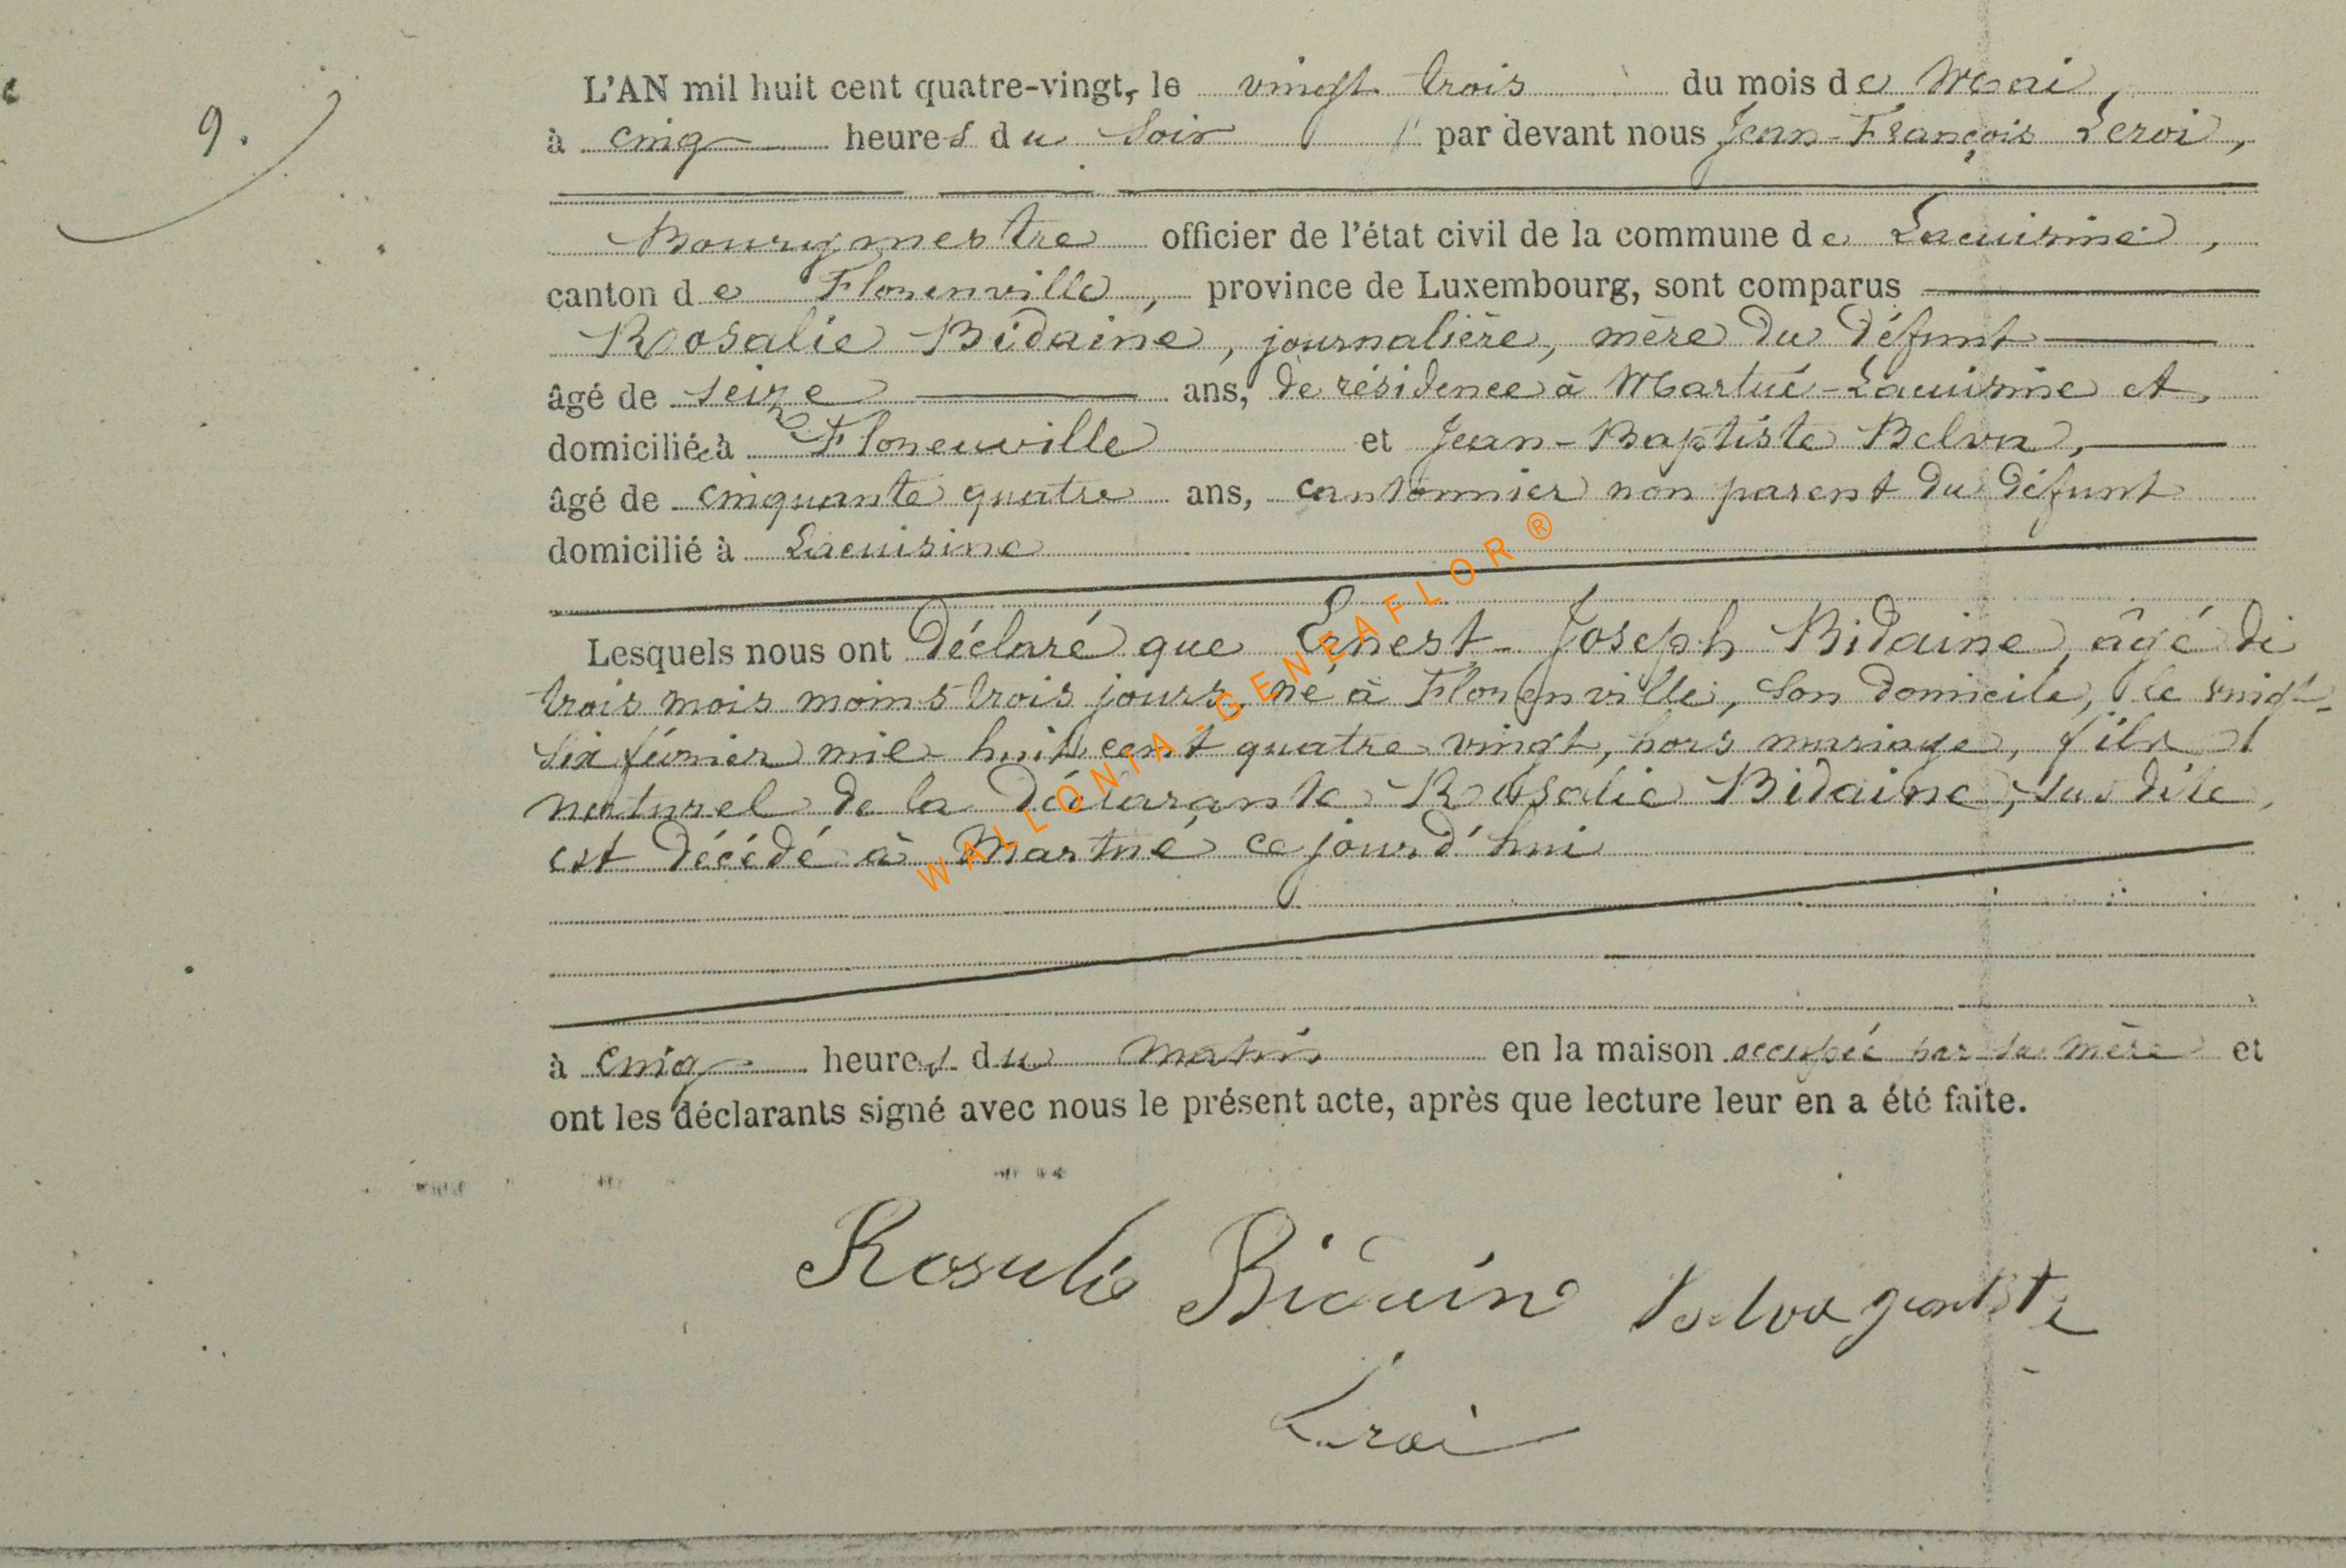 9.
L'AN mil huit cent quatre-vingt, le vingt trois du mois de Mai,
à cinq heures du soir par devant nous Jean-François Leroi,
Bourgmestre officier de l'état civil de la commune de Lacuisine,
canton de Florenville, province de Luxembourg, sont comparus
Rosalie Bidaine, journalière, mère du défunt
âgé de seize ans, de résidence à Martué-Lacuisine et
domiciliée à Florenville et Jean-Baptiste Belva,
âgé de cinquante quatre ans, cantonnier non parent du défunt
domicilié à Lacuisine
Lesquels nous ont déclaré que Ernest-Joseph Bidaine, âgé de
trois mois moins trois jours, né à Florenville, son domicile, le vingt-
six février mil huit cent quatre vingt, hors mariage, fils
naturel de la déclarante Rosalie Bidaine, susdite,
est décédé à Martué ce jourd'hui
à cinq heures du matin en la maison occupée par sa mère et
ont les déclarants signé avec nous le présent acte, après que lecture leur en a été faite.
Rosalie Bidaine Belva
Leroi
WALLONIA-GENEAFLOR®